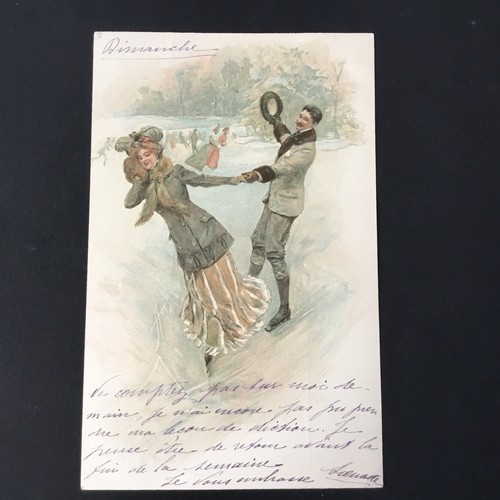 Dimanche
Ne comptez pas sur moi de-
main, je n'ai encore pas pu pren
dre ma leçon de diction. Je
pense être de retour avant la
fin de la semaine
Je vous embrasse